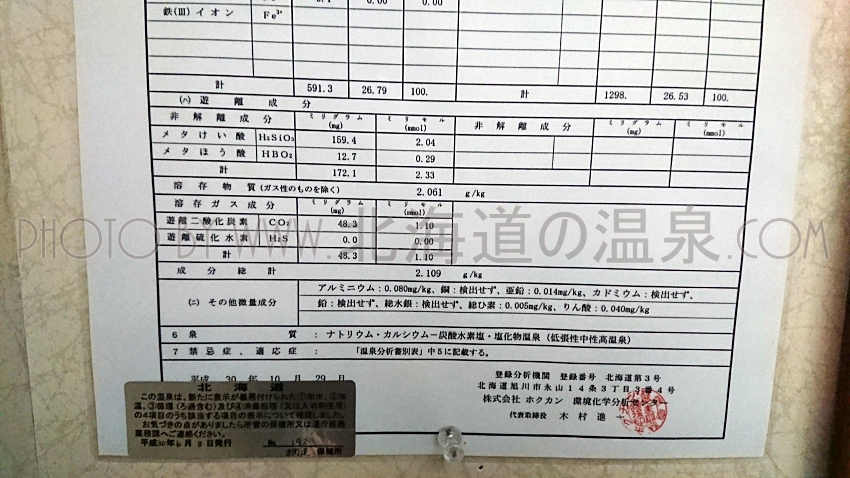 鉄(Ⅲ)イオン Fe³⁺ 0.00 0.00
計 591.3 26.79 100. 計 1298. 26.53 100.
(ハ) 遊離成分
非解離成分 ミリグラム(mg) ミリモル(mmol) 非解離成分 ミリグラム(mg) ミリモル(mmol)
メタけい酸 H₂SiO₃ 159.4 2.04
メタほう酸 HBO₂ 12.7 0.29
計 172.1 2.33
溶存物質(ガス性のものを除く) 2.061 g/kg
溶存ガス成分 ミリグラム(mg) ミリモル(mmol)
遊離二酸化炭素 CO₂ 48.3 1.10
遊離硫化水素 H₂S 0.0 0.00
計 48.3 1.10
成分総計 2.109 g/kg
(ニ) その他微量成分 アルミニウム:0.080mg/kg、銅:検出せず、亜鉛:0.014mg/kg、カドミウム:検出せず、
鉛:検出せず、総水銀:検出せず、総ひ素:0.005mg/kg、りん酸:0.040mg/kg
6 泉質 : ナトリウム・カルシウム-炭酸水素塩・塩化物温泉(低張性中性高温泉)
7 禁忌症、適応症 : 「温泉分析書別表」中5に記載する。
平成 30年 10月 29日
登録分析機関 登録番号 北海道第3号
北海道旭川市永山14条3丁目3番4号
株式会社ホクカン 環境化学分析センター
代表取締役 木村 進
北海道
この温泉は、新たに表示が義務付けられた①加水、②加
温、③循環(ろ過含む)及び④消毒処理(又は入浴剤使用)
の4項目のうち該当する項目の表示について確認しました。
お気づきの点がありましたら所管の保健所又は道庁医務
薬務課へご連絡ください。
発行 No.
保健所
PHOTO BY WWW.北海道の温泉.COM